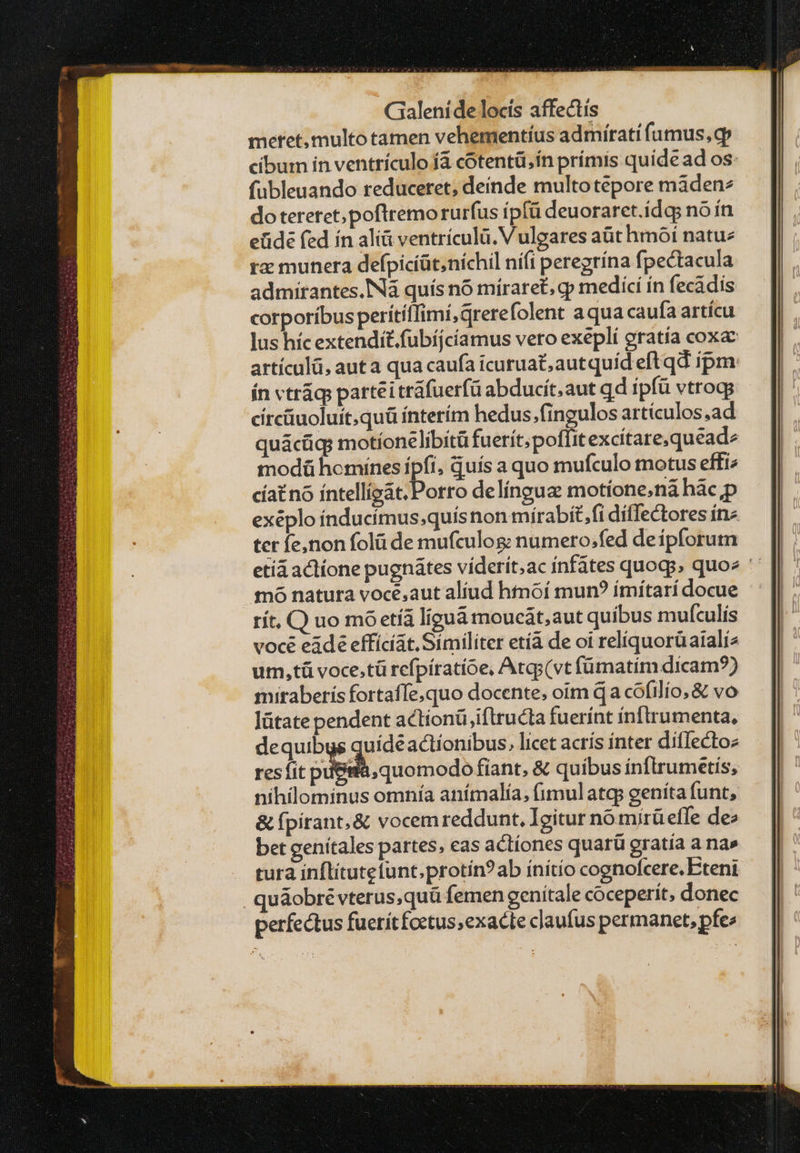 Galeni de locis affectis
meret, multo tamen vehementius admirati sumus, ꝙ
cibum in ventriculo iā cōtentū, in primis quidē ad os
subleuando reduceret, deinde multo tēpore māden⸗
do tereret, postremo rursus ipsū deuoraret. idq; nō in
eūdē sed in aliū ventriculū. Vulgares aūt hmōi natu⸗
ræ munera despiciūt, nichil nisi peregrina spectacula
admirantes. Nā quis nō miraret, ꝙ medici in secādis
corporibus peritissimi, q̄rere solent a qua causa articu
lus hic extendit. subijciamus vero exēpli gratia coxæ
articulū, aut a qua causa icuruat, aut quid est qd ipm
in vtrāq; partē i trāsuersū abducit, aut qd ipsū vtroq;
circūuoluit. quū interim hedus, singulos articulos, ad
quācūq; motionē libitū fuerit, possit excitare, quēad⸗
modū homines ipsi, q̄uis a quo musculo motus effi⸗
ciat nō intelligāt. Porro de linguæ motione, nā hāc p
exēplo inducimus, quis non mirabit, si dissectores in⸗
ter se, non solū de musculoꝝ numero, sed de ipsorum
etiā actione pugnātes viderit, ac infātes quoq;, quo⸗
mō natura vocē, aut aliud hmōi mun9 imitari docue
rit. Quo mō etiā liguā moueāt, aut quibus musculis
vocē eādē efficiāt. Similiter etiā de oi reliquorū aiali⸗
um, tū voce, tū respiratiōe. Atq; (vt sūmatim dicam9)
miraberis fortasse, quo docente, oim q̄ a cōsilio, & vo
lūtate pendent actionū, istructa fuerint instrumenta.
de quibus quidē actionibus, licet acris inter dissecto⸗
res sit pugna, quomodo fiant, & quibus instrumētis,
nihilominus omnia animalia, simul atq; genita sunt,
& spirant, & vocem reddunt. Igitur nō mirū esse de⸗
bet genitales partes, eas actiones quarū gratia a na⸗
tura institutę sunt, protin9 ab initio cognoscere. Eteni
quāobrē vterus, quū semen genitale cōceperit, donec
perfectus fuerit fœtus, exacte clausus permanet, pfe⸗